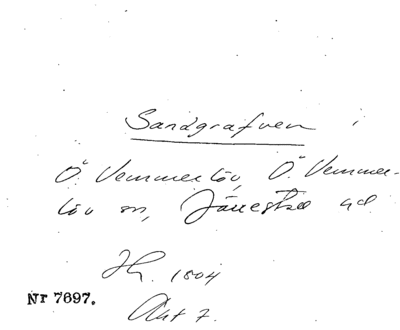 Sandgrafven
Ö. Vemmerlöv, Ö. Vemmer-
löv sn, Järrestad hd
Hr. 1804
Nr 7697.
Akt 7.